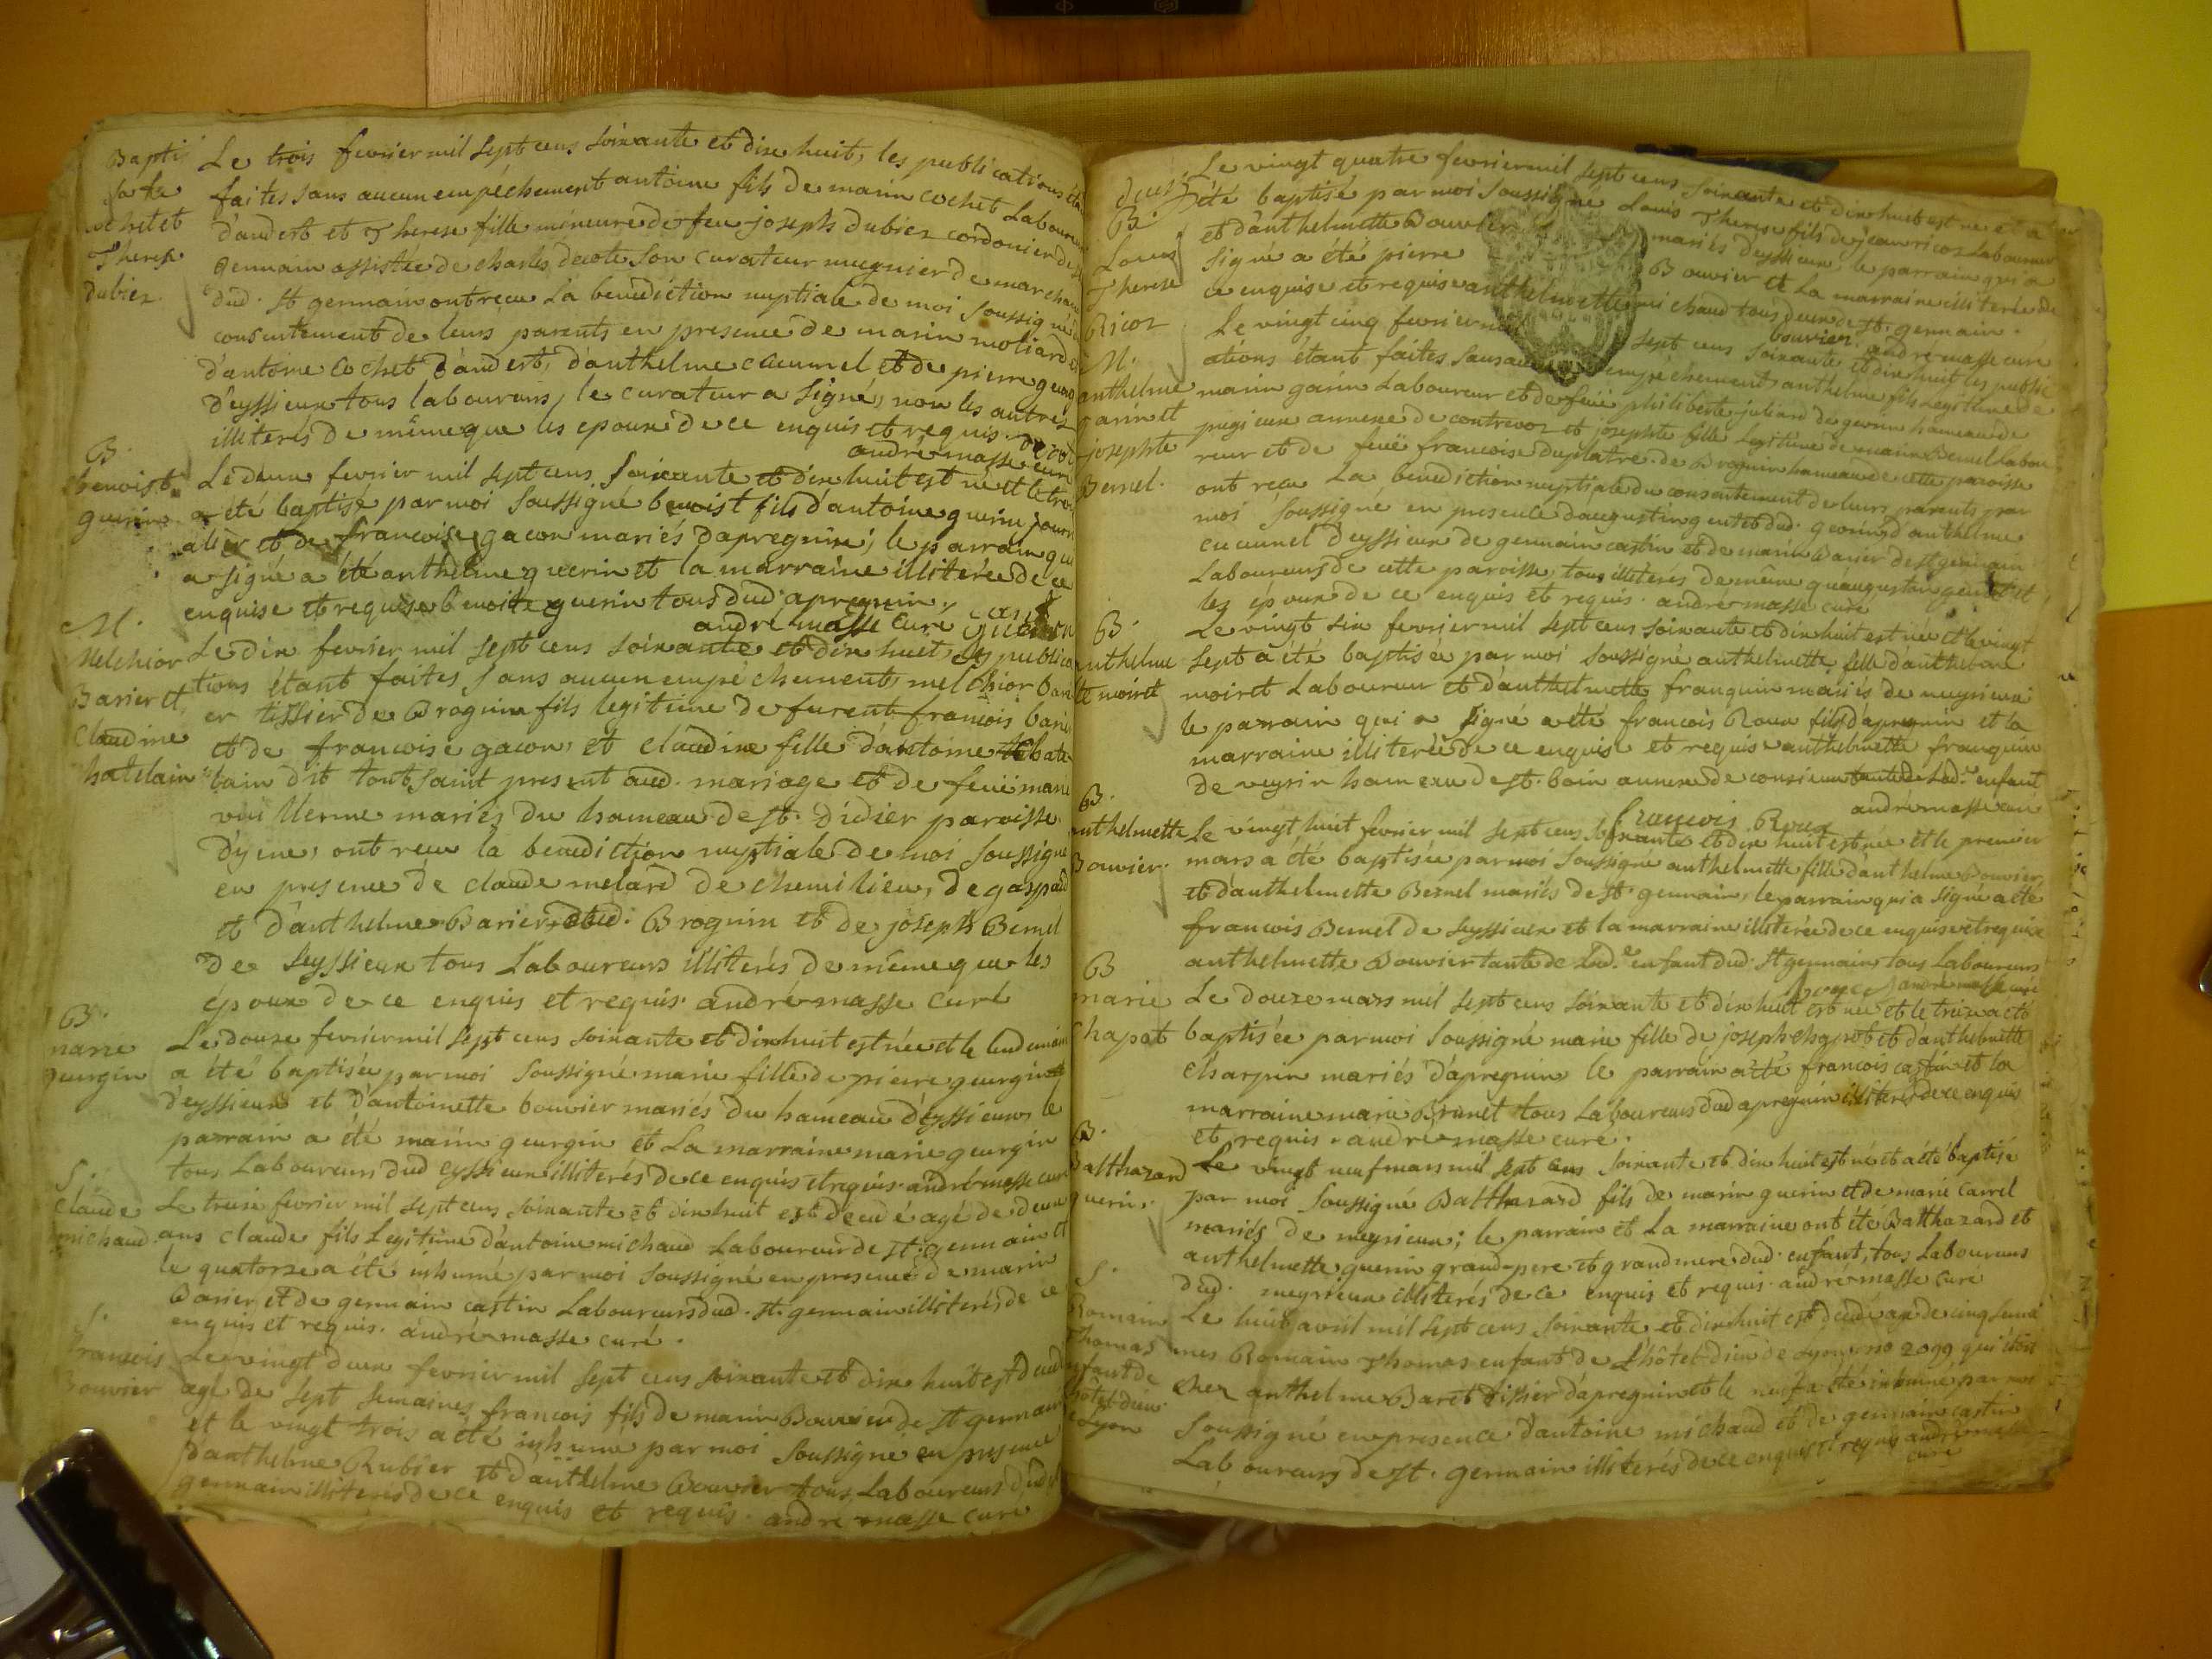 Baptis
Le trois fevrier mil sept cens soixante et dix huit, les publications
faites sans aucun empêchement antoine fils de marin cochet Laboureur
cochet et
d'andert et Therese fille mineure de feu joseph dubiez cordonier de
Therese
germain assistée de charles decote son curateur mugnier de marchand
dubiez
dud. St germain ont reçu la benediction nuptiale de moi soussigné
consentement de leurs parents en presence de marin moliard
d'antoine cochet d'andert, d'anthelme cucunel et de pierre
d'eyssieux tous laboureurs, le curateur a signé, non les autres
illiterés de même que les epoux de ce enquis et requis.
andré masse curé
B.
benoist
guerin
Le deux fevrier mil sept cens soixante et dix huit est né et le trois
a été baptisé par moi soussigné benoist fils d'antoine guerin journ
alier et de francoise gacon mariés d'apregnin; le parrain qui
a signé a été anthelme guerin et la marraine illiterée de ce
enquise et requise benoite guerin tous dud. apregnin.
andré masse curé
M.
Melchior
Barier et
Claudine
hatelain
Le dix fevrier mil sept cens soixante et dix huit, les publica
tions étant faites sans aucun empêchement, melchior bari
er tissier de Brognin fils legitime de furent françois barier
et de francoise gacon, et claudine fille d'antoine chate
lain dit tout saint present aud. mariage et de feuë marie
mariés du hameau de St. Didier paroisse
d'yene, ont reçu la benediction nuptiale de moi soussigné
en presence de claude melard de chemilieu, de gaspard
et d'anthelme Barier dud. Brognin et de joseph Bernel
de Seyssieux tous Laboureurs illiterés de même que les
époux de ce enquis et requis. andré masse curé
B.
marie
gurgin
Le douze fevrier mil sept cens soixante et dix huit est née et le lendemain
a été baptisée par moi soussigné marie fille de pierre gurgin
d'eyssieux et d'antoinette bouvier mariés du hameau d'eyssieux, le
parrain a été marin gurgin et la marraine marie gurgin
tous Laboureurs dud eyssieux illiterés de ce enquis et requis. andré masse curé
S.
Claude
michaud
Le treize fevrier mil sept cens soixante et dix huit est decedé agé de deux
ans claude fils Legitime d'antoine michaud Laboureur de st. germain et
le quatorze a été inhumé par moi soussigné en presence de marin
Barier et de germain castin Laboureurs dud. st. germain illiterés de ce
enquis et requis. andré masse curé.
S.
francois
Bouvier
Le vingt deux fevrier mil sept cens soixante et dix huit est decedé
agé de sept semaines francois fils de marin Bouvier de st germain
et le vingt trois a été inhumé par moi soussigné en presence
d'anthelme Rubier et d'anthelme Bouvier tous Laboureurs dud. st
germain illiterés de ce enquis et requis. andré masse curé
B.
Louis
Therese
Ricoz
Le vingt quatre fevrier mil sept cens soixante et dix huit est né et a
été baptisé par moi soussigné Louis Therese fils de jean ricoz Laboureur
et d'anthelmette Bouvier mariés d'eyssieux, le parrain qui a
signé a été pierre Bouvier et La marraine illiterée de
ce enquise et requise anthelmette michaud tous deux de st. germain.
bouvier andré masse curé
M.
anthelme
garin et
josephte
Bernel.
Le vingt cinq fevrier mil sept cens soixante et dix huit les public
ations étant faites sans aucun empêchement, anthelme fils Legitime de
marin garin Laboureur et de feuë philiberte juliard de gevrin hameau de
pugieux annexe de contrevoz et josephte fille legitime de marin Bernel Labou
reur et de feuë francoise duplatre de Brognin hameau de cette paroisse
ont reçu la benediction nuptiale du consentement de leurs parents par
moi soussigné en presence d'augustin gentet dud. gevrin, d'anthelme
cucunel d'eyssieux de germain castin et de marin Barier de st germain
Laboureurs de cette paroisse, tous illiterés de même qu'augustin gentet et
les époux de ce enquis et requis. andré masse curé
B.
anthelme
tte moiret
Le vingt six fevrier mil sept cens soixante et dix huit est née et le vingt
sept a été baptisée par moi soussigné anthelmette fille d'anthelme
moiret Laboureur et d'anthelmette franquin mariés de meyrieux;
le parrain qui a signé a été francois Roux fils d'apregnin et la
marraine illiterée de ce enquise et requise anthelmette franquin
de veyrin hameau de st. boin annexe de consieux tante de Lad.e enfant
francois Roux andré masse curé
B.
anthelmette
Bouvier.
Le vingt huit fevrier mil sept cens soixante et dix huit est née et le premier
mars a été baptisée par moi soussigné anthelmette fille d'anthelme Bouvier
et d'anthelmette Bernel mariés de St. germain, le parrain qui a signé a été
francois Bernel de Seyssieux et la marraine illiterée de ce enquise et requise
anthelmette Bouvier tante de Lad.e enfant dud. St germain, tous Laboureurs
andré masse curé
B
marie
Chapot
Le douze mars mil sept cens soixante et dix huit est née et le treize a été
baptisée par moi soussigné marie fille de joseph chapot et d'anthelmette
charpin mariés d'apregnin le parrain a été francois castin et la
marraine marie Brunet tous Laboureurs dud apregnin illiterés de ce enquis
et requis. andré masse curé.
B.
Balthazard
guerin.
Le vingt neuf mars mil sept cens soixante et dix huit est né et a été baptisé
par moi soussigné Balthazard fils de marin guerin et de marie Carrel
mariés de meyrieux; le parrain et La marraine ont été Balthazard et
anthelmette guerin grand-pere et grand mere dud. enfant, tous Laboureurs
dud. meyrieux illiterés de ce enquis et requis. andré masse curé
S.
Romain
Thomas
enfant de
hôtel-dieu
de Lyon
Le huit avril mil sept cens soixante et dix huit est decedé agé de cinq semai
nes Romain Thomas enfant de L'hôtel-dieu de Lyon no 2099 qui étoit
chez anthelme Baret tissier d'apregnin et le neuf a été inhumé par moi
soussigné en presence d'antoine michaud et de germain castin
Laboureurs de st. germain illiterés de ce enquis et requis andré masse
curé